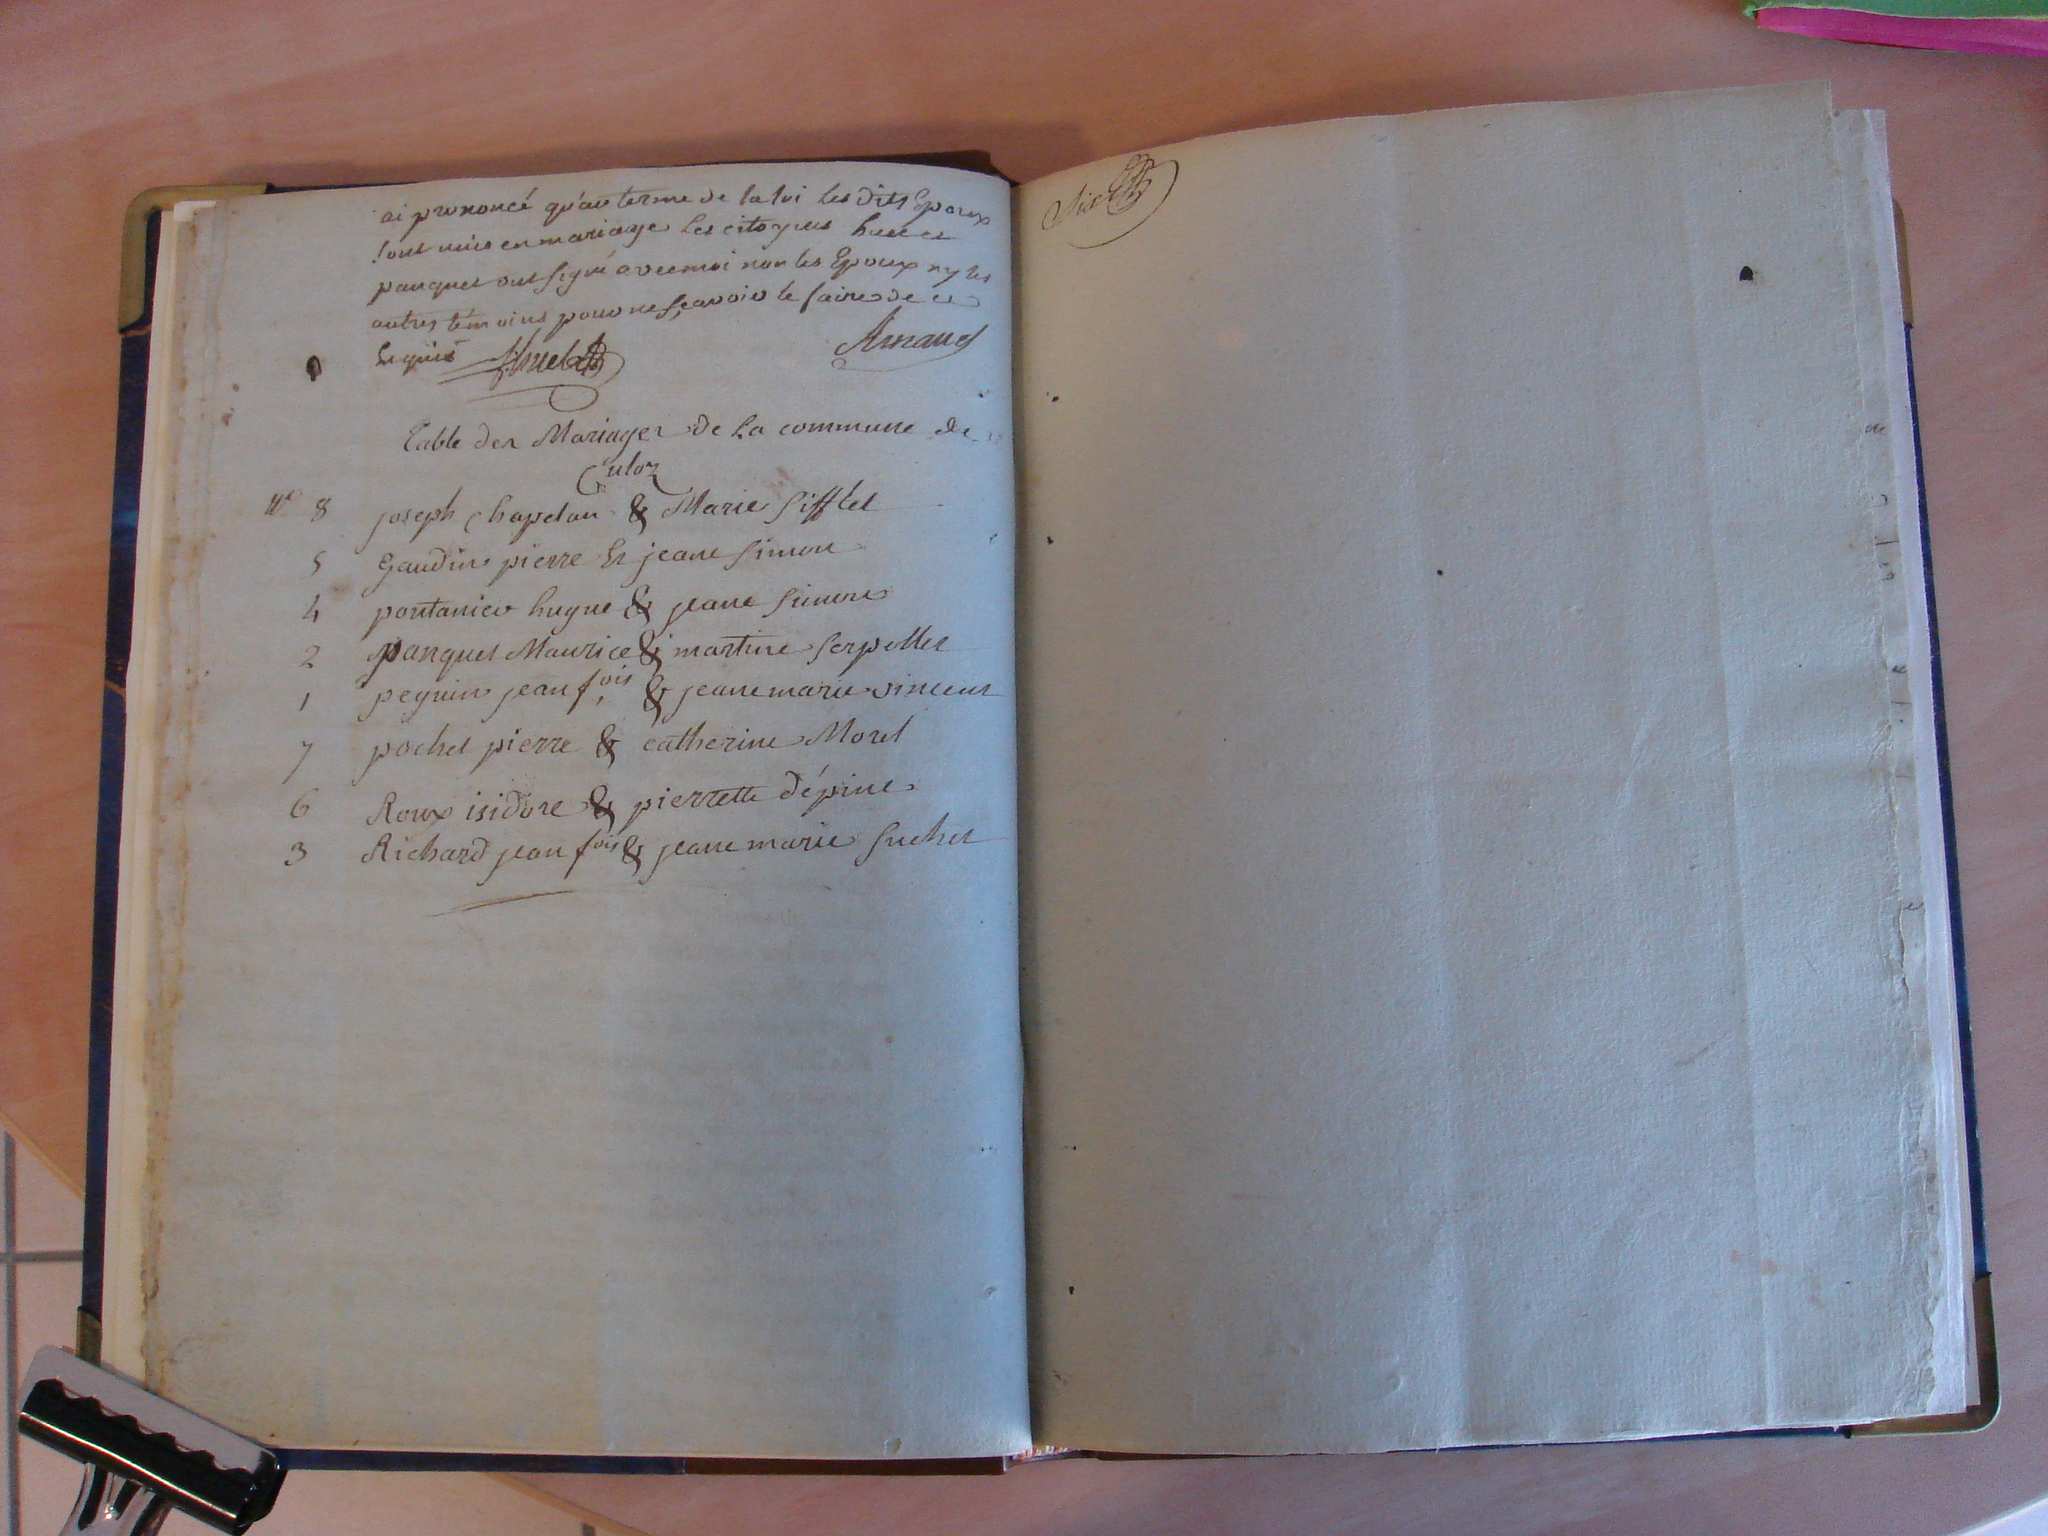 ai prononcé qu'au terme de la loi les dits Epoux
sont unis en mariage les citoyens huet et
panquet ont signé avec moi non les Epoux ny les
autres témoins pour ne sçavoir le faire de ce
Enquis Arnaud
Table des Mariages de La commune de
Culoz
n° 8 joseph Chapelan & Marie Sifflet
5 Gaudin pierre Et jeane Simon
4 pontanier hugue & jeane Simon
2 panquet Maurice & martine Serpollet
1 peguin jean fois & jeane marie vincent
7 pochet pierre & catherine Morel
6 Roux isidore & pierrette dépine
3 Richard jean fois & jeane marie Suchet